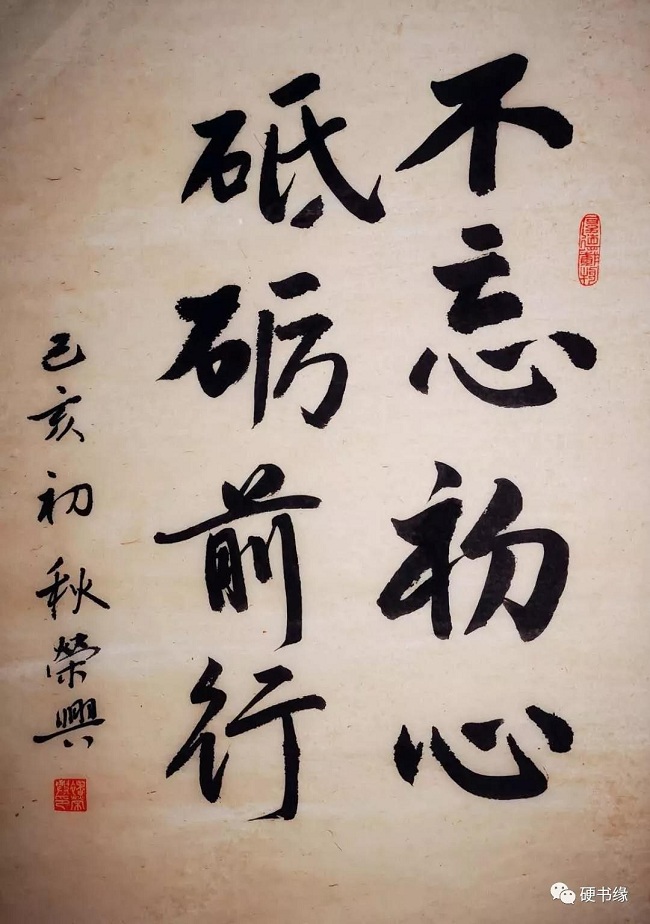 不忘初心
砥砺前行
己亥初秋荣興
硬书缘